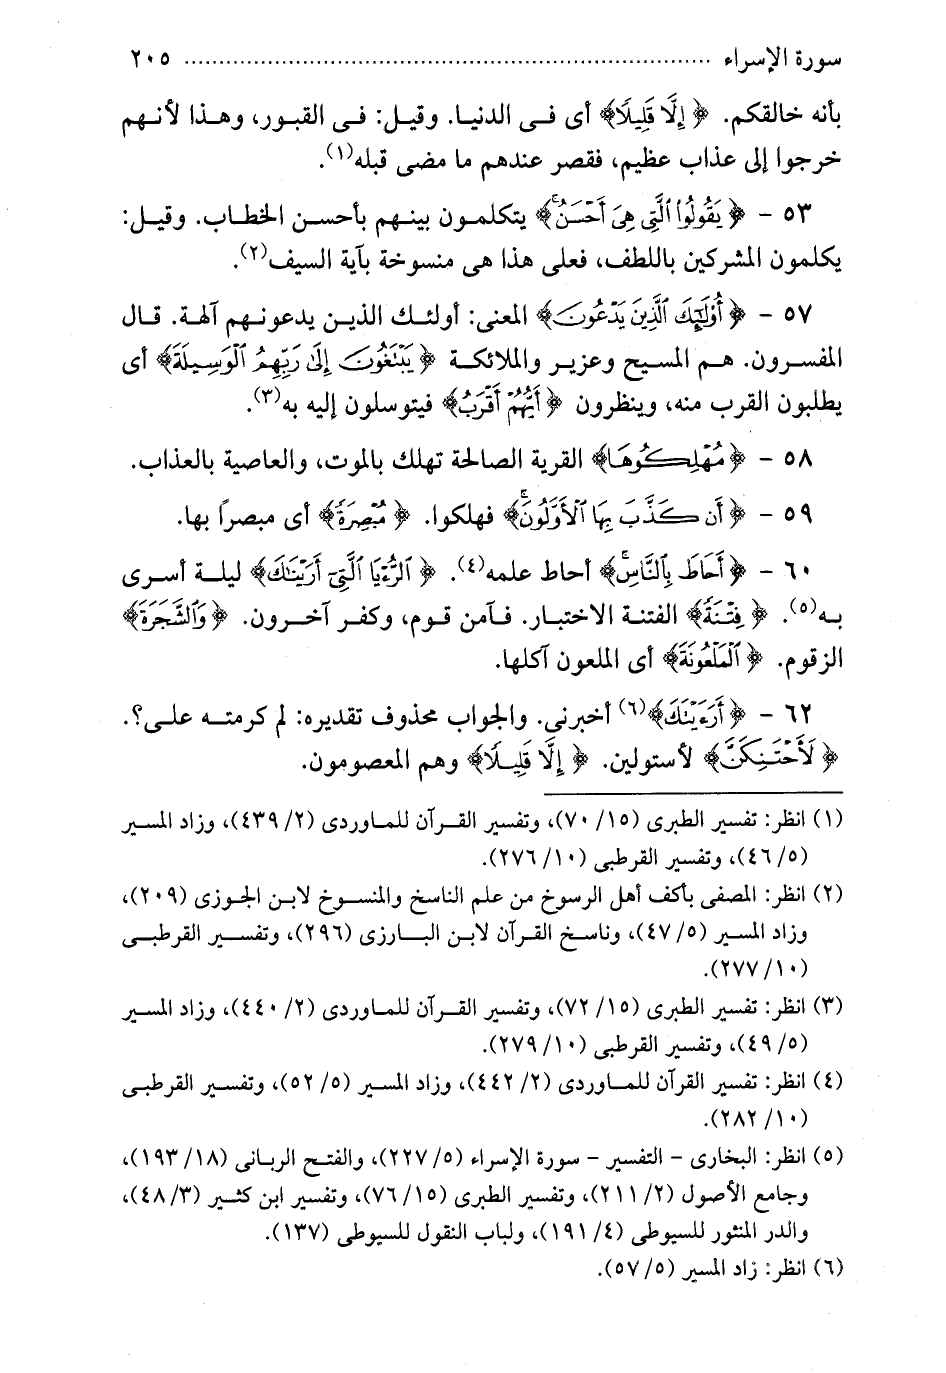 سورة الإسراء ........................................................................ ٢٠٥
بأنه خالقكم. ﴿ إِلَّا قَلِيلًا﴾ أى فى الدنيا. وقيل: فى القبور، وهذا لأنهم
خرجوا إلى عذاب عظيم، فقصر عندهم ما مضى قبله(١).
٥٣ - ﴿ يَقُولُوا۟ ٱلَّتِى هِىَ أَحْسَنُ ۚ﴾ يتكلمون بينهم بأحسن الخطاب. وقيل:
يكلمون المشركين باللطف، فعلى هذا هى منسوخة بآية السيف(٢).
٥٧ - ﴿ أُو۟لَٰٓئِكَ ٱلَّذِينَ يَدْعُونَ ﴾ المعنى: أولئك الذين يدعونهم آلهة. قال
المفسرون. هم المسيح وعزير والملائكة ﴿ يَبْتَغُونَ إِلَىٰ رَبِّهِمُ ٱلْوَسِيلَةَ﴾ أى
يطلبون القرب منه، وينظرون ﴿ أَيُّهُمْ أَقْرَبُ﴾ فيتوسلون إليه به(٣).
٥٨ - ﴿ مُهْلِكُوهَا﴾ القرية الصالحة تهلك بالموت، والعاصية بالعذاب.
٥٩ - ﴿ أَن كَذَّبَ بِهَا ٱلْأَوَّلُونَ ۚ﴾ فهلكوا. ﴿ مُبْصِرَةً﴾ أى مبصراً بها.
٦٠ - ﴿ أَحَاطَ بِٱلنَّاسِ ۚ﴾ أحاط علمه(٤). ﴿ ٱلرُّءْيَا ٱلَّتِىٓ أَرَيْنَٰكَ﴾ ليلة أسرى
به(٥). ﴿ فِتْنَةً﴾ الفتنة الاختبار. فآمن قوم، وكفر آخرون. ﴿ وَٱلشَّجَرَةَ﴾
الزقوم. ﴿ ٱلْمَلْعُونَةَ﴾ أى الملعون آكلها.
٦٢ - ﴿ أَرَءَيْتَكَ﴾(٦) أخبرني. والجواب محذوف تقديره: لم كرمته على؟.
﴿ لَأَحْتَنِكَنَّ﴾ لأستولين. ﴿ إِلَّا قَلِيلًا﴾ وهم المعصومون.
(١) انظر: تفسير الطبرى (١٥/ ٧٠)، وتفسير القرآن للماوردى (٢/ ٤٣٩)، وزاد المسير
(٥/ ٤٦)، وتفسير القرطبى (١٠/ ٢٧٦).
(٢) انظر: المصفى بأكف أهل الرسوخ من علم الناسخ والمنسوخ لابن الجوزى (٢٠٩)،
وزاد المسير (٥/ ٤٧)، وناسخ القرآن لابن البارزى (٢٩٦)، وتفسير القرطبى
(١٠/ ٢٧٧).
(٣) انظر: تفسير الطبرى (١٥/ ٧٢)، وتفسير القرآن للماوردى (٢/ ٤٤٠)، وزاد المسير
(٥/ ٤٩)، وتفسير القرطبى (١٠/ ٢٧٩).
(٤) انظر: تفسير القرآن للماوردى (٢/ ٤٤٢)، وزاد المسير (٥/ ٥٢)، وتفسير القرطبى
(١٠/ ٢٨٢).
(٥) انظر: البخارى - التفسير - سورة الإسراء (٥/ ٢٢٧)، والفتح الربانى (١٨/ ١٩٣)،
وجامع الأصول (٢/ ٢١١)، وتفسير الطبرى (١٥/ ٧٦)، وتفسير ابن كثير (٣/ ٤٨)،
والدر المنثور للسيوطى (٤/ ١٩١)، ولباب النقول للسيوطى (١٣٧).
(٦) انظر: زاد المسير (٥/ ٥٧).